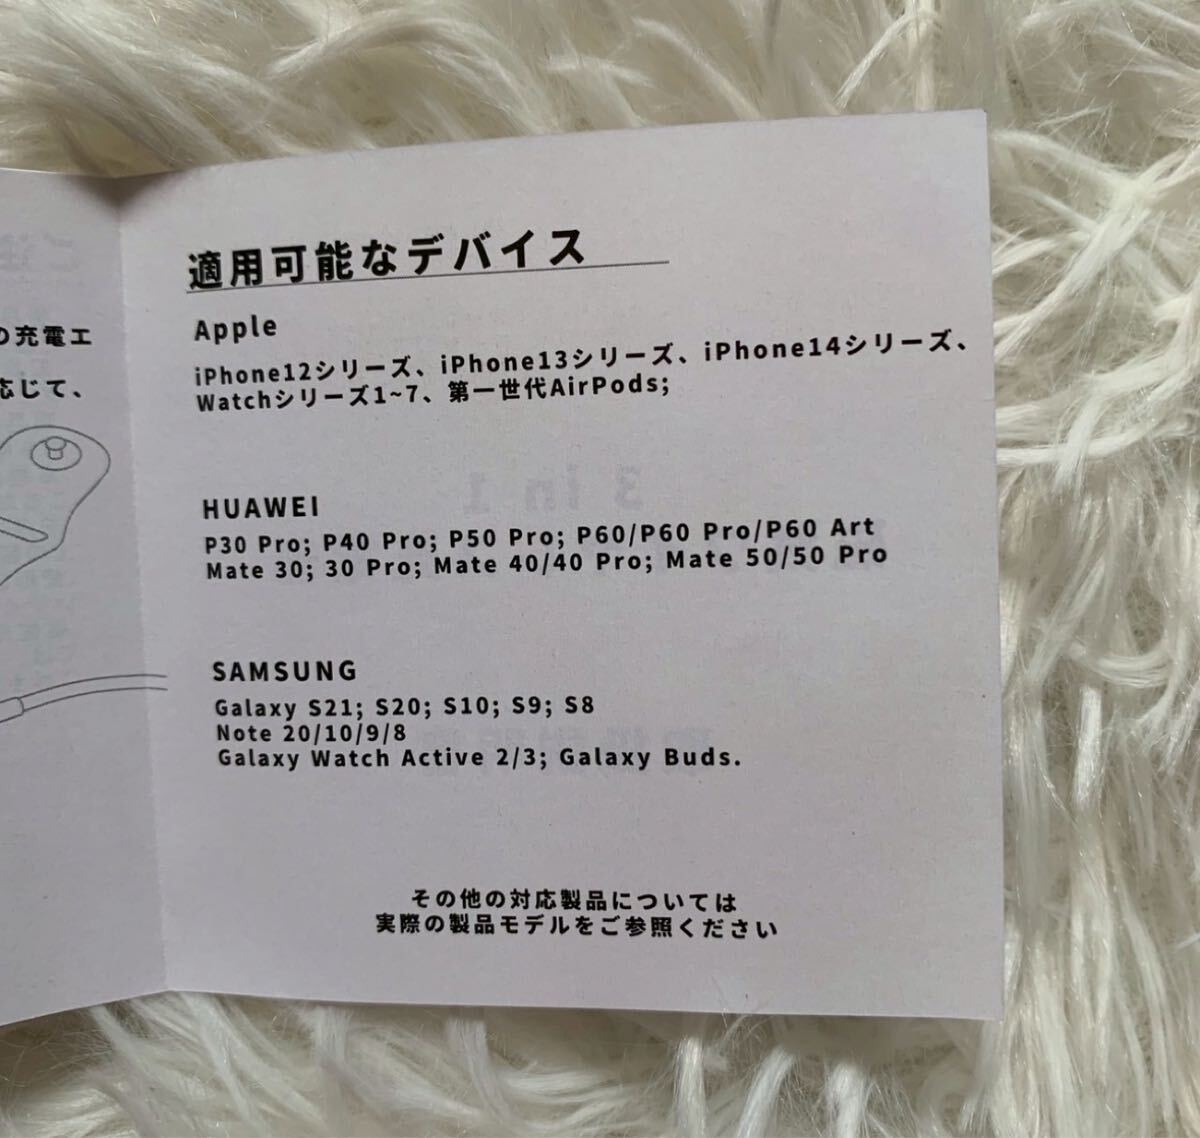 の充電エ
応じて、
適用可能なデバイス
Apple
iPhone12シリーズ、iPhone13シリーズ、iPhone14シリーズ、
Watchシリーズ1~7、第一世代AirPods;
3 in 1
HUAWEI
P30 Pro; P40 Pro; P50 Pro; P60/P60 Pro/P60 Art
Mate 30; 30 Pro; Mate 40/40 Pro; Mate 50/50 Pro
SAMSUNG
Galaxy S21; S20; S10; S9; S8
Note 20/10/9/8
Galaxy Watch Active 2/3; Galaxy Buds.
その他の対応製品については
実際の製品モデルをご参照ください